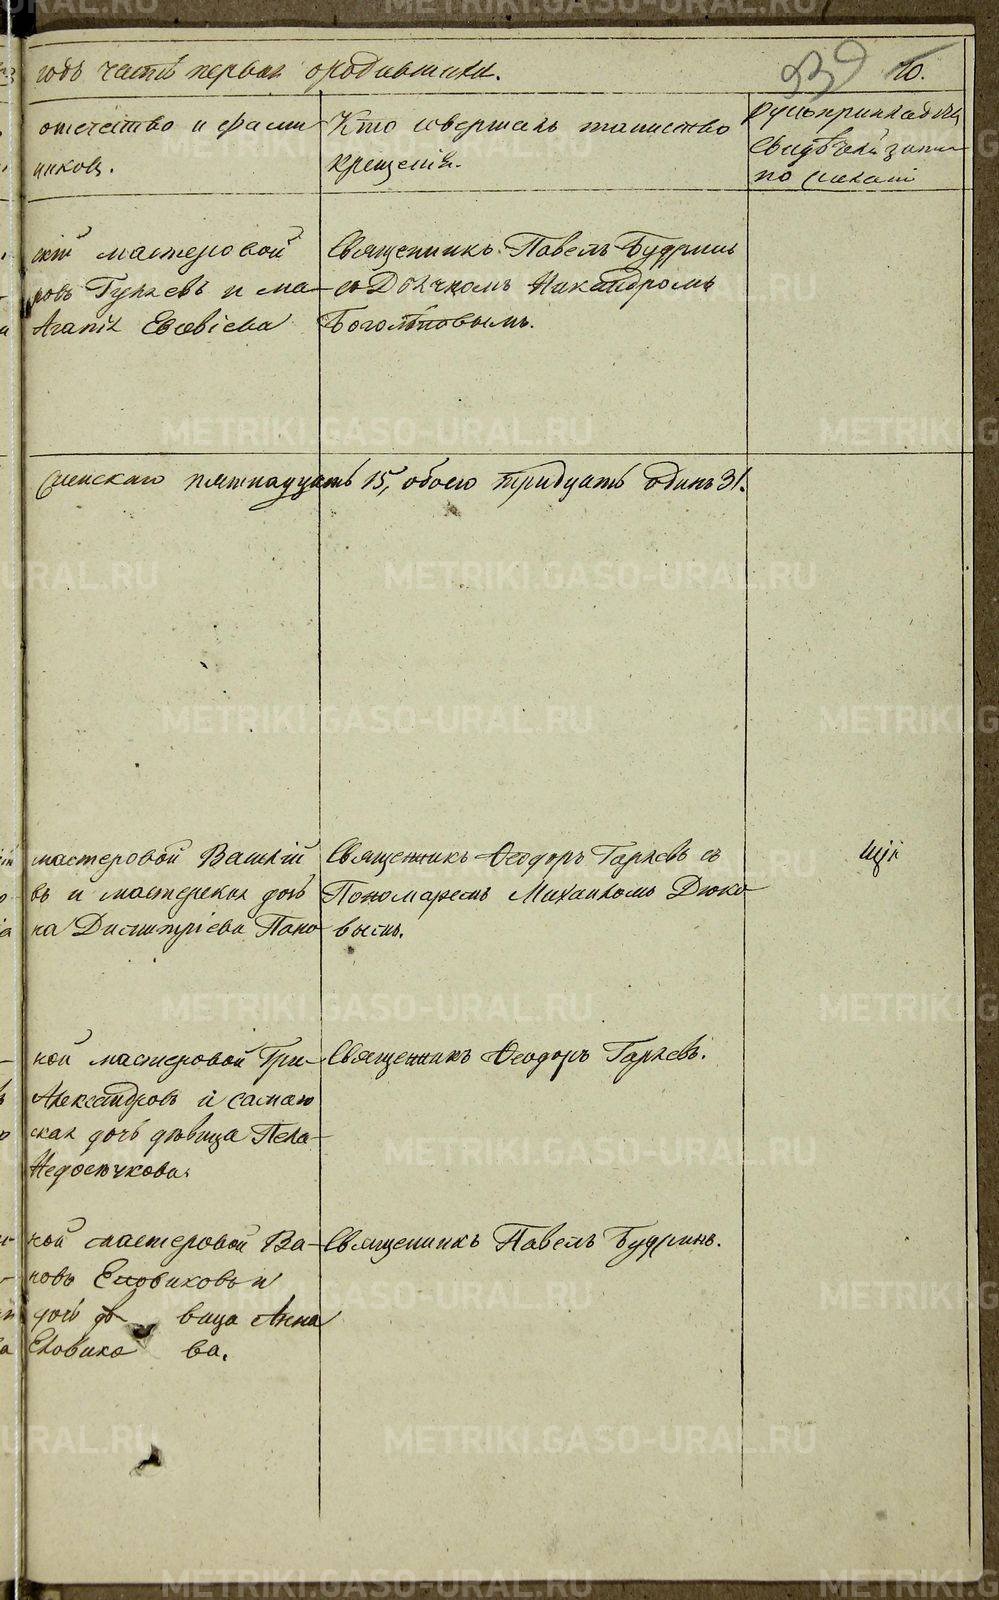 годъ часть первая о родившихся.
10.
отечество и фами
никовъ.
Кто совершалъ таинство
крещенія.
Рукоприкладство
свидѣтелей записи
по желанію
скій мастеровой
ровъ Гуляевъ и ма-
Агапія Евсевіева
Священникъ Павелъ Будринъ
съ Дьячкомъ Никандромъ
Боголѣповымъ.
Женскаго пятнадцать 15, обоего тридцать одинъ 31.
мастеровой Василій
въ и мастерская дочь
на Димитріева Пано
Священникъ Ѳеодоръ Гаряевъ съ
Пономаремъ Михаиломъ Дюко
вымъ.
кой мастеровой Гри-
Александровъ и
ская дочь дѣвица Пела-
Недосѣчкова.
Священникъ Ѳеодоръ Гаряевъ.
кой мастеровой Ва-
новъ Еловиковъ и
дочь дѣ вица Анна
Еловико ва.
Священникъ Павелъ Будринъ.
METRIKI.GASO-URAL.RU